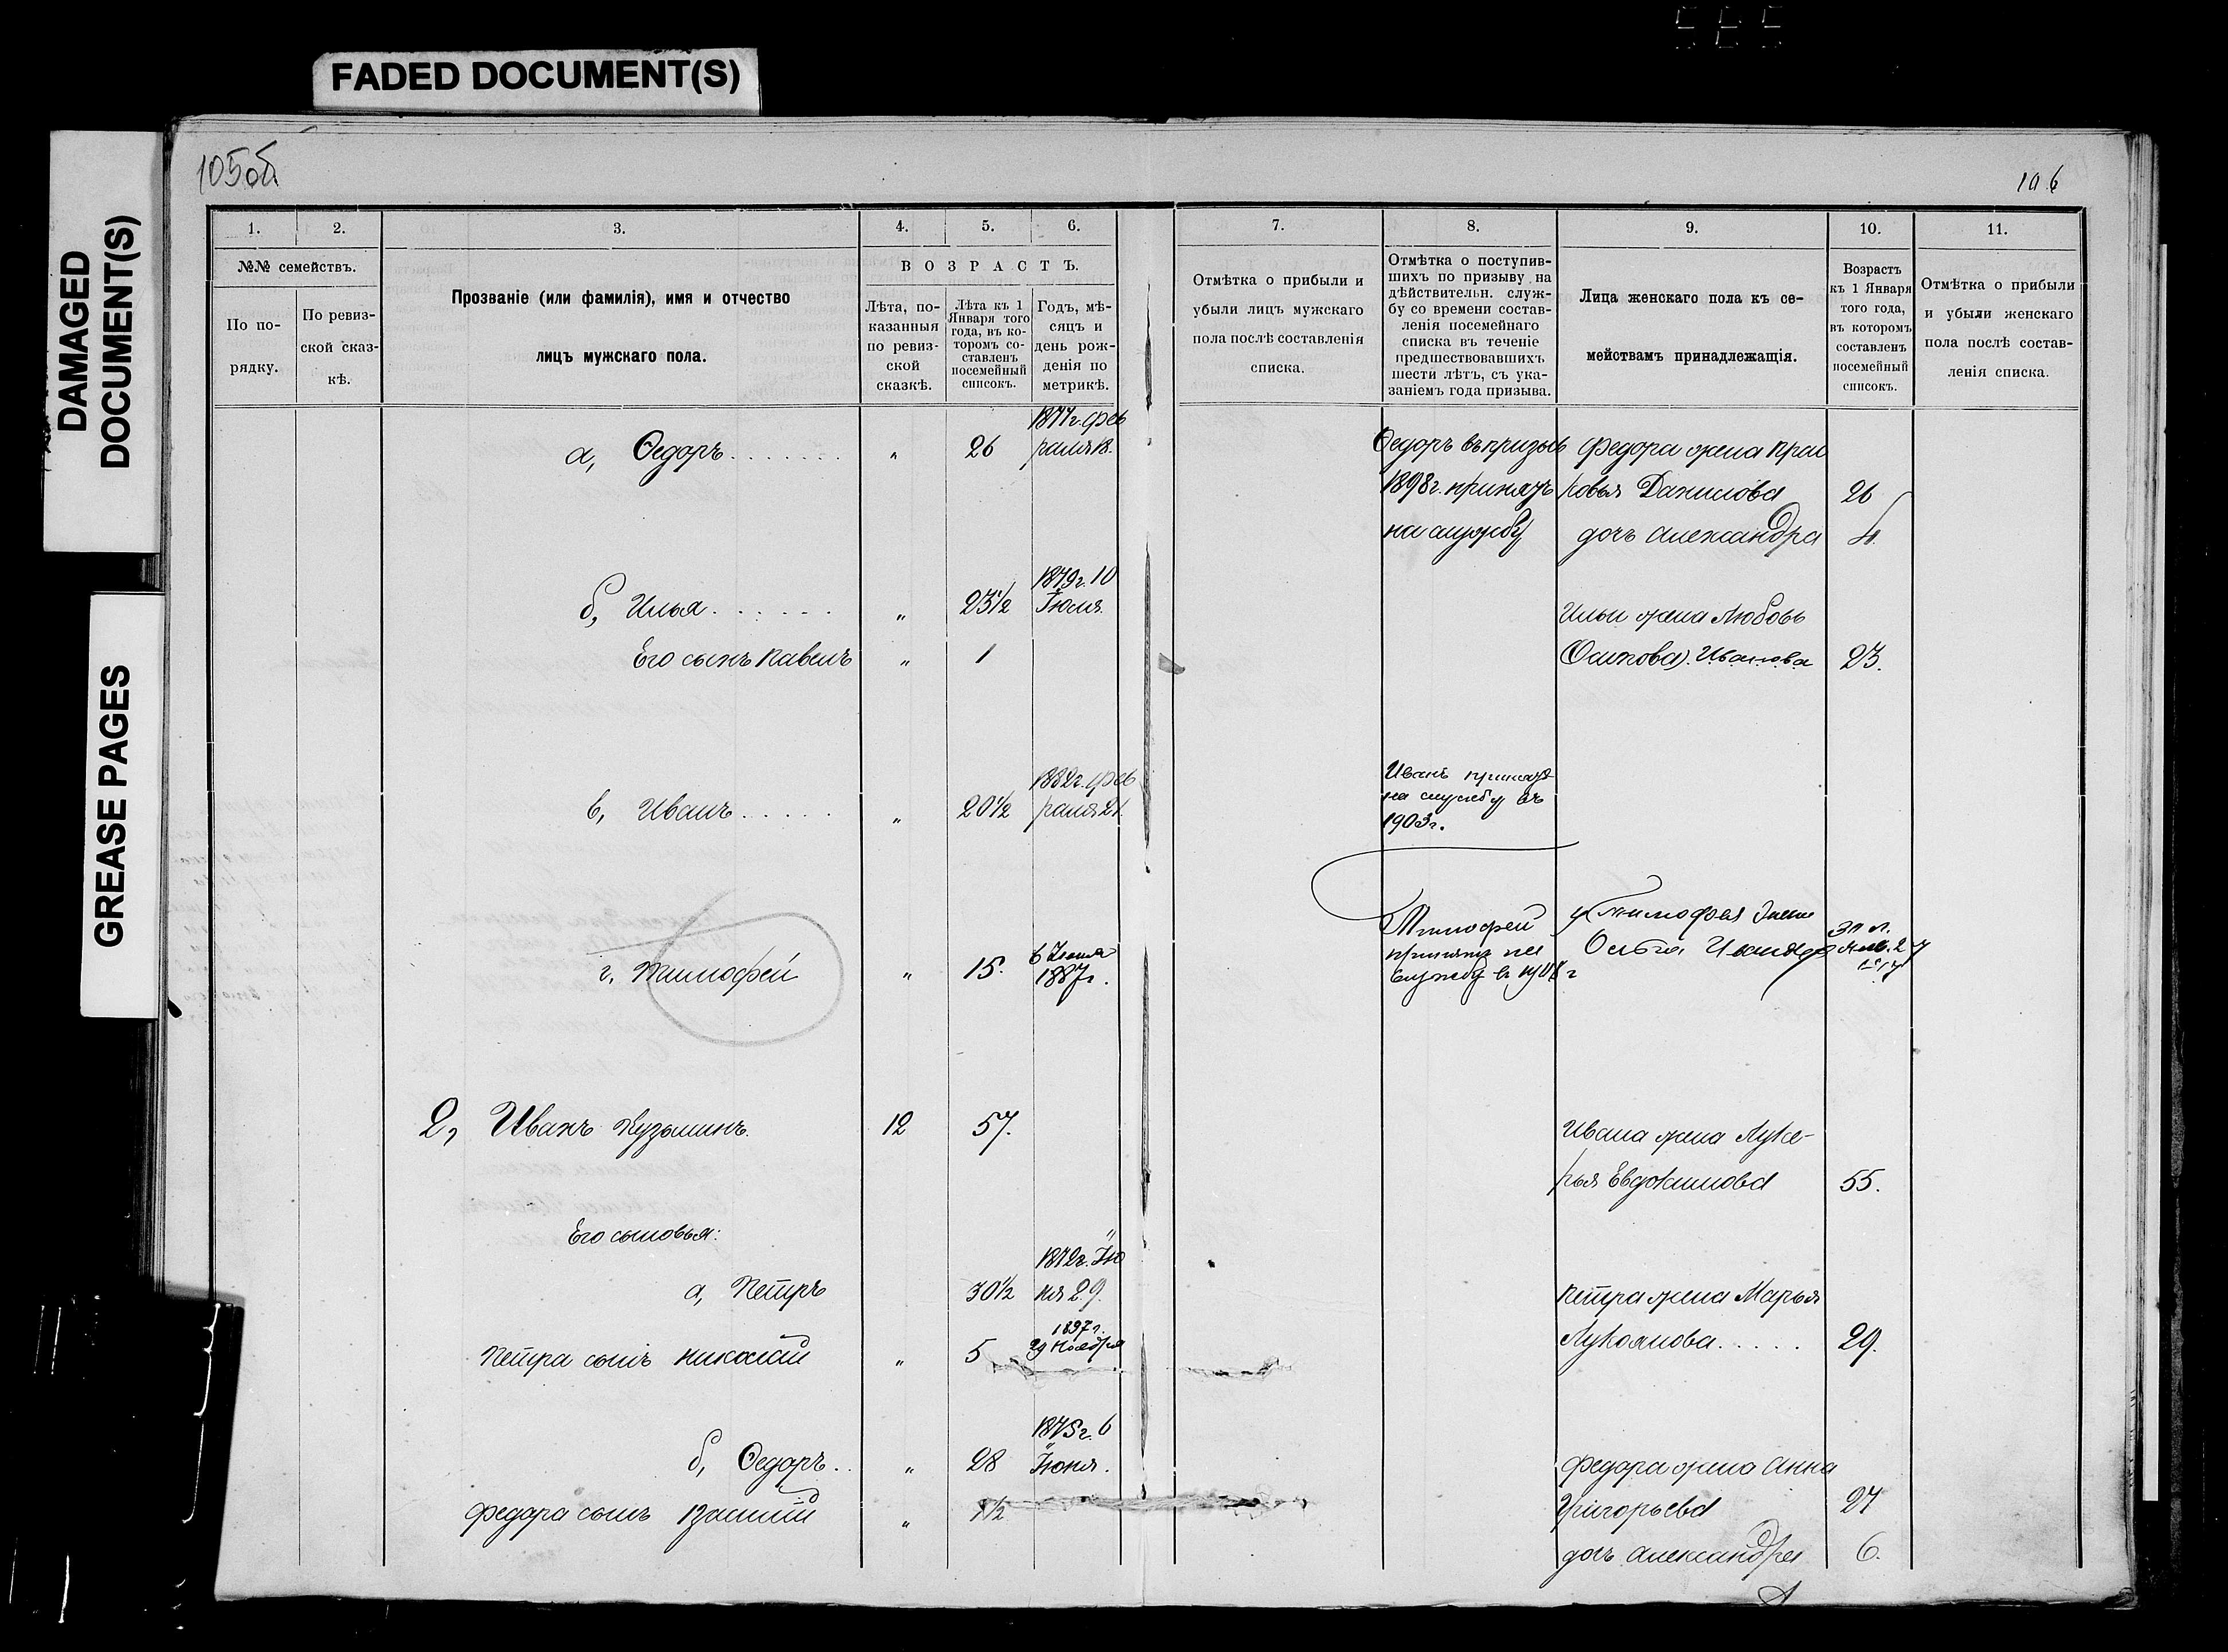 FADED DOCUMENT(S)
DAMAGED
DOCUMENT(S)
GREASE PAGES
105об
106
1.
2.
3.
4.
5.
6.
№№ семействъ.
По по-
рядку.
По ревиз-
ской сказ-
кѣ.
Прозваніе (или фамилія), имя и отчество
лицъ мужскаго пола.
ВОЗРАСТЪ.
Лѣта, по-
казанныя
по ревиз-
ской
сказкѣ.
Лѣта къ 1
Января того
года, въ ко-
торомъ со-
ставленъ
посемейный
списокъ.
Годъ, мѣ-
сяцъ и
день рож-
денія по
метрикѣ.
7.
8.
9.
10.
11.
Отмѣтка о прибыли и
убыли лицъ мужскаго
пола послѣ составленія
списка.
Отмѣтка о поступив-
шихъ по призыву на
дѣйствительн. служ-
бу со времени состав-
ленія посемейнаго
списка въ теченіе
предшествовавшихъ
шести лѣтъ, съ ука-
заніемъ года призыва.
Лица женскаго пола къ се-
мействамъ принадлежащія.
Возрастъ
къ 1 Января
того года,
въ которомъ
составленъ
посемейный
списокъ.
Отмѣтка о прибыли
и убыли женскаго
пола послѣ состав-
ленія списка.
а, Ѳедоръ . . . . . . . „ 26
1877г. фев
раля 18.
Ѳедоръ въ призывъ
1898г. принятъ
на службу
Федора жена Прас
ковья Данилова 26
дочь Александра 4
б, Илья . . . . . . „ 23 1/2
1879г. 10
Іюля.
Его сынъ Павелъ „ 1
Ильи жена Любовь
(Осипова). Иванова 23.
в, Иванъ . . . . . „ 20 1/2
1882г. фев
раля 21.
Иванъ принятъ
на службу въ
1903г.
г, Тимофей „ 15.
6 Іюня
1887г.
Тимофей
принятъ на
службу в 1908 г
у Тимофея жена
Ольга
2, Иванъ Кузьминъ. 12 57.
Ивана жена Луке-
рья Евдокимова 55.
Его сыновья:
а, Петръ 30 1/2
1872г. Ію
ня 29.
Петра жена Марья
Лукоянова . . . . . 29.
Петра сынъ Николай „ 5
1897г.
29 Ноября
б, Ѳедоръ . . „ 28
1875г. 6
Іюня.
Федора жена Анна
Григорьева 27
Федора сынъ Василій „ 1 1/2
дочь Александра 6.